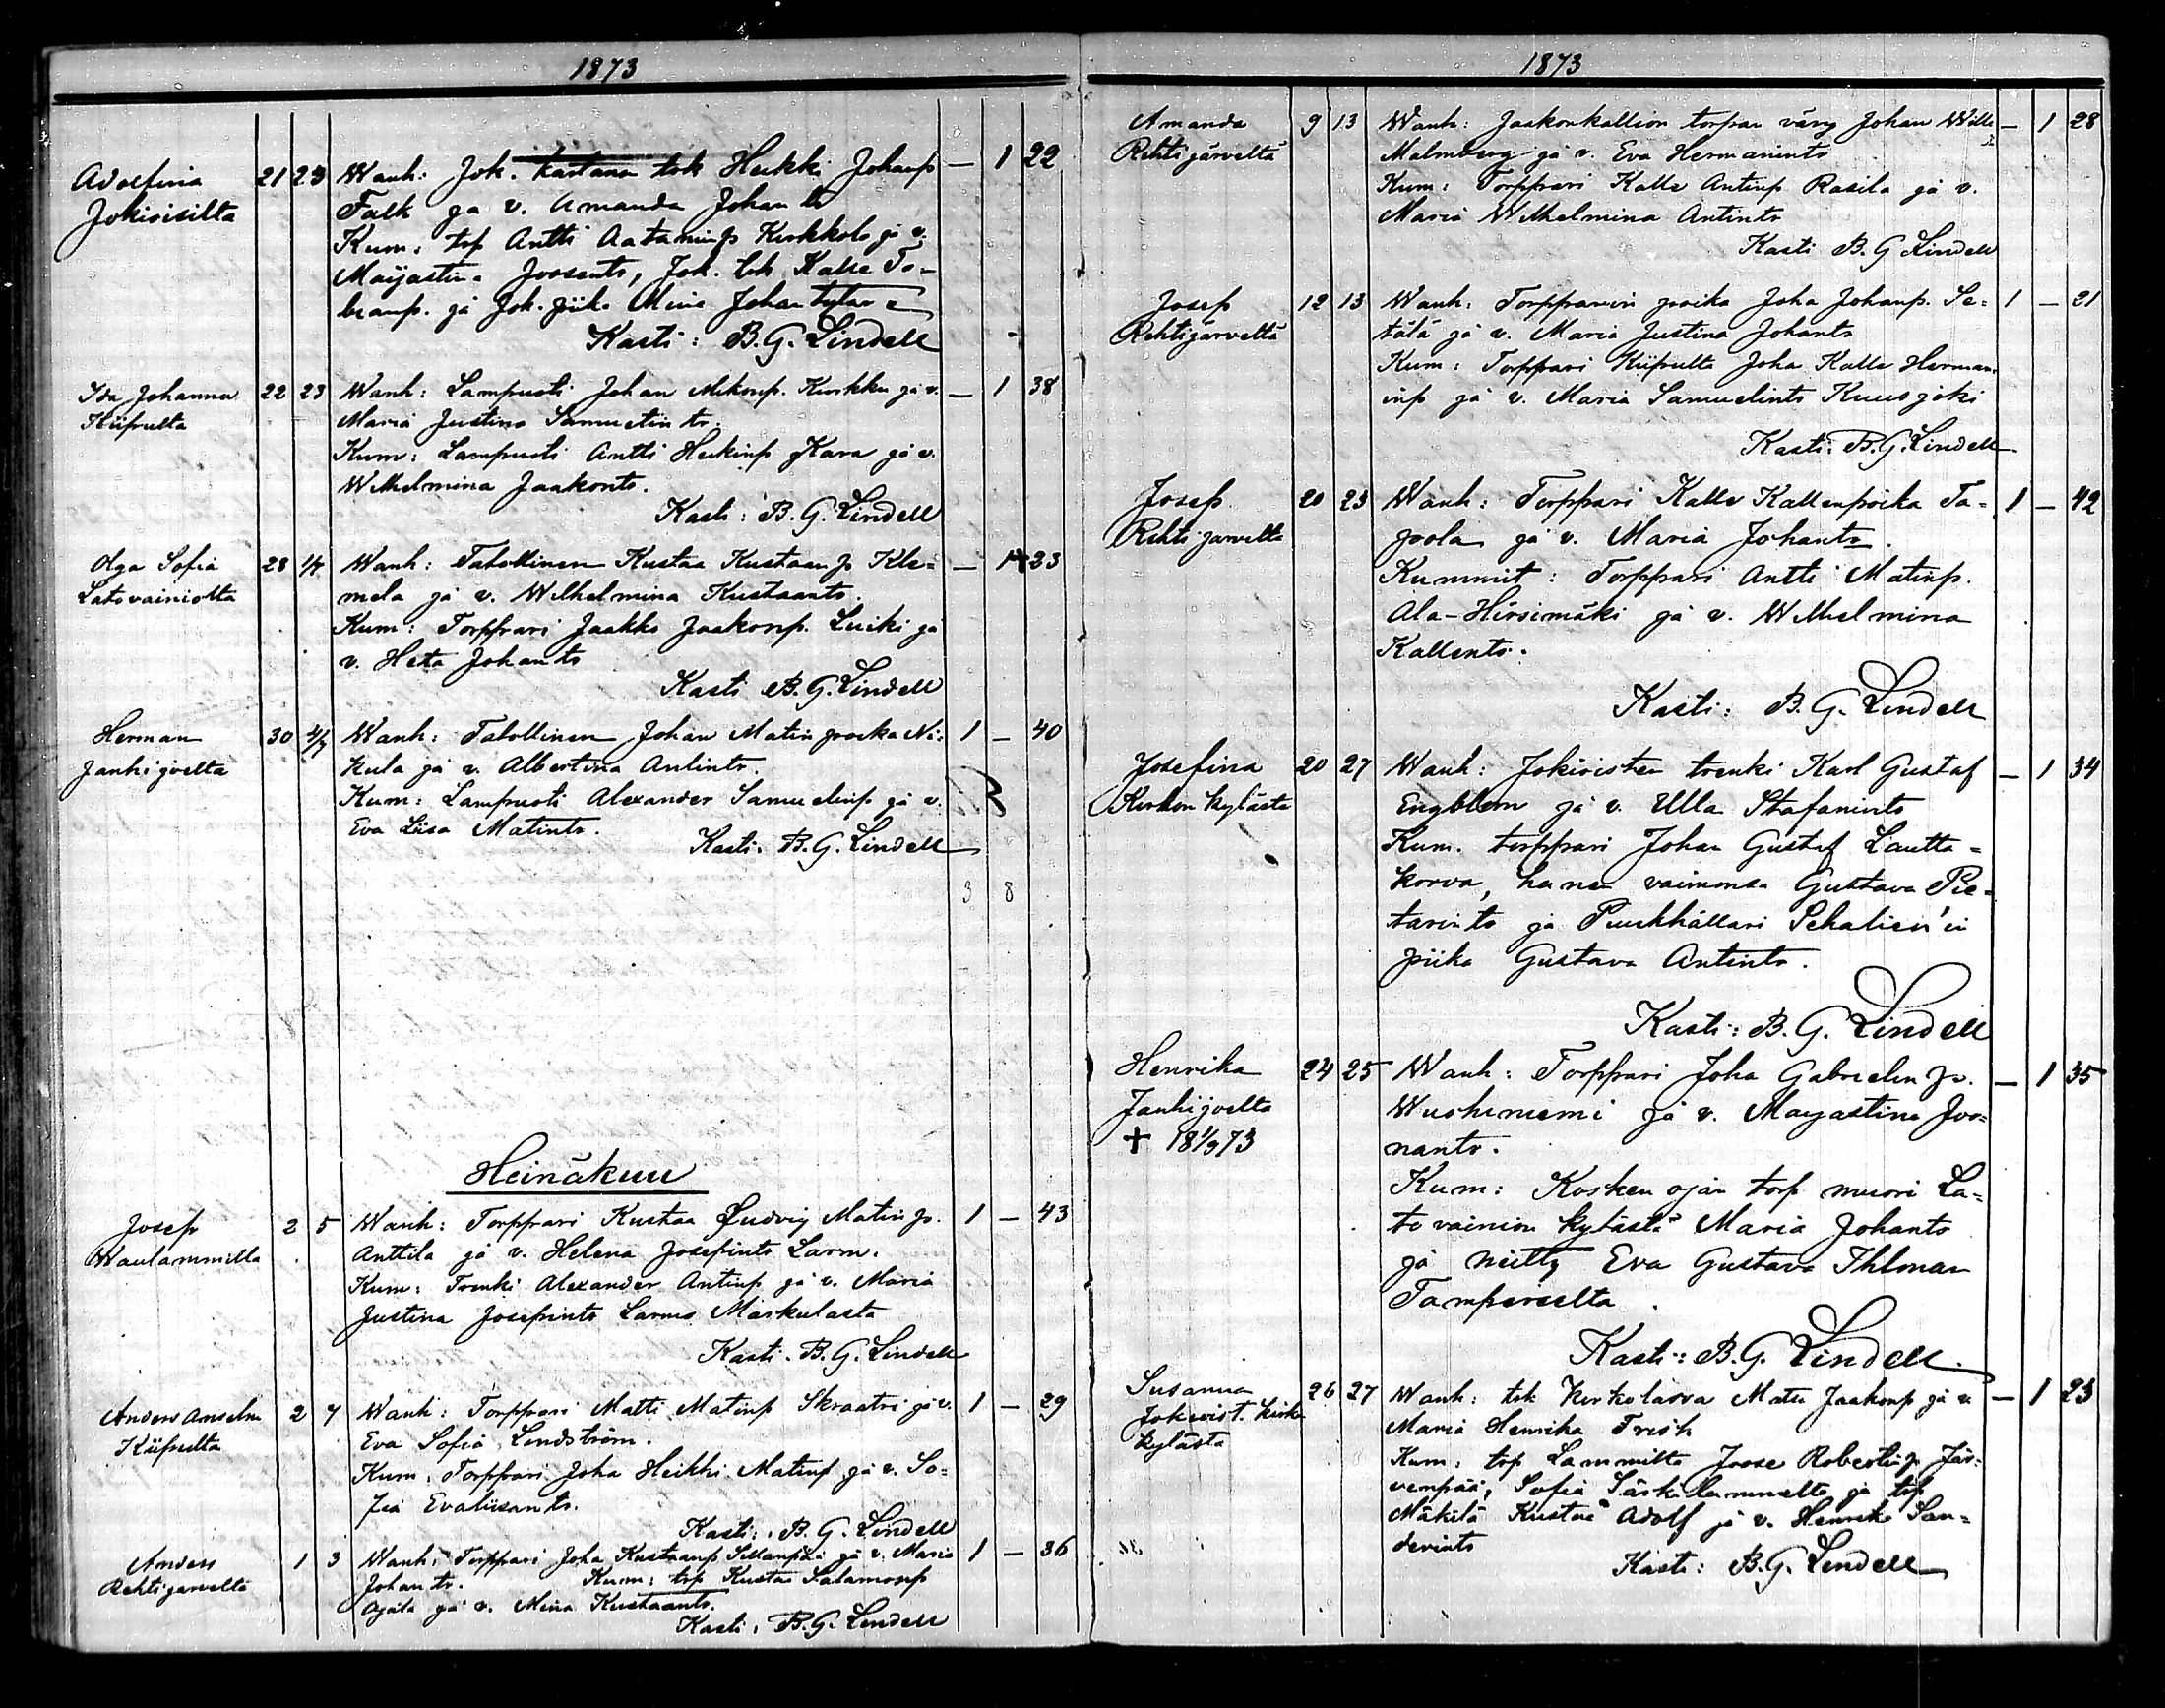 1873
Adolfina 21 23 Wanh: Jok. kartanon trk Heikki Johanp — 1 22
Jokioisilta Falk ja v. Amanda Johan tr
Kum: trp Antti Aataminp Kerkkola ja v.
Maijastina Joosents, Jok. trk Kalle To-
bianp. ja Jok. piika Mina Johan tytär
Kasti: B. G. Lindell
Ida Johanna 22 23 Wanh: Lampuoti Johan Mikonp. Kurkku ja v. — 1 38
Kiipulta Maria Justina Samuelin tr.
Kum: Lampuoti Antti Heikinp Kara ja v.
Wilhelmina Jaakonts.
Kasti: B. G. Lindell
Olga Sofia 28 1/7 Wanh: Talollinen Kustaa Kustaanp Kle= — 1 23
Latovainiolta mela ja v. Wilhelmina Kustaants.
Kum: Torppari Jaakko Jaakonp. Luiki ja
v. Heta Johan ts
Kasti B. G. Lindell
Herman 30 4/7 Wanh: Talollinen Johan Matin poika Ni= 1 — 40
Janhijoelta kula ja v. Albertina Antints.
Kum: Lampuoti Alexander Samuelinp ja v.
Eva Liisa Matints.
Kasti: B. G. Lindell
3 8
Heinäkuu
Josep 2 5 Wanh: Torppari Kustaa Ludvig Matin p. 1 — 43
Waulammilla Anttila ja v. Helena Josefints Larm.
Kum: Trenki Alexander Antinp ja v. Maria
Justina Josefints Larms Märkulasta
Kasti. B. G. Lindell
Anders Anselm 2 7 Wanh: Torppari Matti Matinp Skraatri ja v. 1 — 29
Kiipulta Eva Sofia Lindström.
Kum. Torppari Joha Heikki Matinp ja v. So=
fia Evaliisants.
Kasti: B. G. Lindell
Anders 1 3 Wanh: Torppari Joha Kustaanp Sillanpää ja v. Maria 1 — 36
Rehtijärveltä Johan ts. Kum: trp Kustaa Salamonp
Ojala ja v. Mina Kustaants.
Kasti: B. G. Lindell
1873
Amanda 9 13 Wanh: Jaakonkallion torpan vävy Johan Wille — 1 28
Rehtijärveltä Malmberg ja v. Eva Hermanints
Kum: Torppari Kalle Antinp Rasila ja v.
Maria Wilhelmina Antints
Kasti B. G Lindell
Josep 12 13 Wanh: Torpparin poika Joha Johanp. Se= 1 — 21
Rehtijärveltä tälä ja v. Maria Justina Johants
Kum: Torppari Kiipulta Joha Kalle Herman
inp ja v. Maria Samuelints Kuusjoki
Kasti: B. G. Lindell
Josep 20 23 Wanh: Torppari Kalle Kallenpoika Ta= 1 — 42
Rehtijärveltä pola ja v. Maria Johants.
Kummit: Torppari Antti Matinp.
Ala-Hirsimäki ja v. Wilhelmina
Kallents.
Kasti: B. G. Lindell
Josefina 20 27 Wanh: Jokioisten trenki Karl Gustaf — 1 34
Kirkon kylästä Engblom ja v. Ulla Stafanints
Kum. torppari Johan Gustaf Lautta=
korva, hänen vaimonsa Gustava Pie=
tarints ja Puukhållari Sehalien'in
piika Gustava Antints.
Kasti: B. G. Lindell
Henrika 24 25 Wanh: Torppari Joha Gabrielin p. — 1 35
Janhijoelta Wuohiniemi ja v. Maijastina Joo=
✝ 18 1/9 73 nants.
Kum: Kosken ojan torp muori La=
tovainion kylästä Maria Johants
ja neitty Eva Gustava Ihlman
Tampereelta.
Kasti: B. G. Lindell
Susanna 26 27 Wanh: trk Matti Jaakonp ja v. — 1 23
Jokioist. kirk Maria Henrika Frisk
kylästä Kum: trp Lammilta Joose Robertinp Jär=
venpää, Sofia Särkilammilta ja trp
Mäkilä Kustaa Adolf ja v. Henrika San=
derints
Kasti: B. G. Lindell